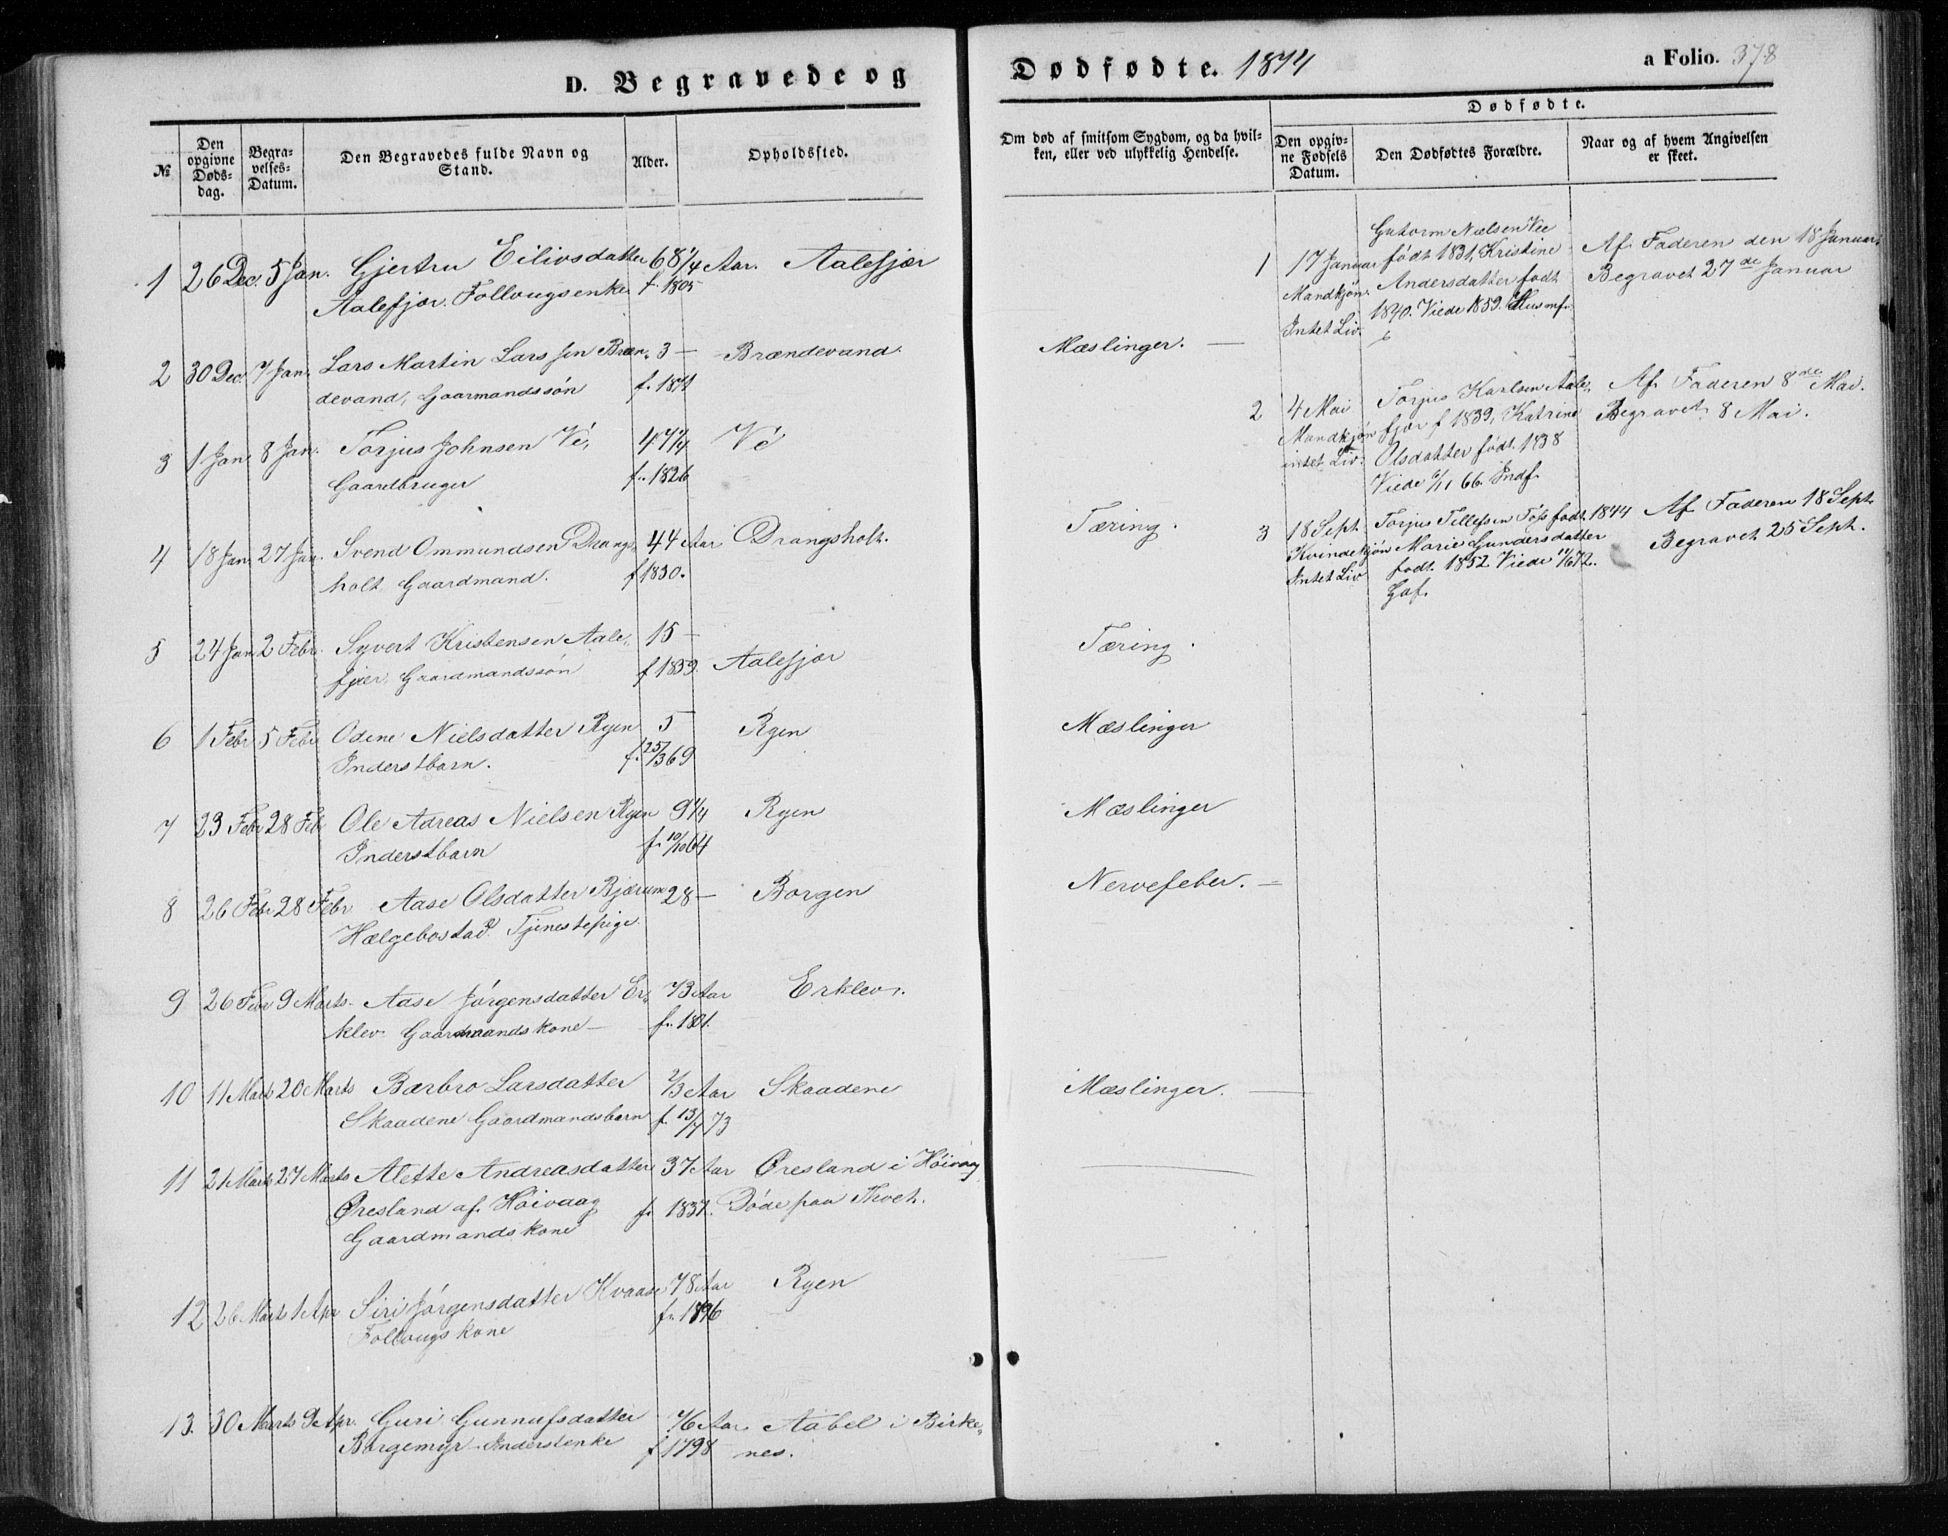 D. Begravede og
Dødfødte. 1874
a Folio. 378
№
Den opgivne Døds-dag.
Begra-velses-Datum.
Den Begravedes fulde Navn og Stand.
Alder.
Opholdssted.
Om død af smitsom Sygdom, og da hvil-ken, eller ved ulykkelig Hendelse.
Dødfødte.
Den opgiv-ne Fødsels Datum.
Den Dødfødtes Forældre.
Naar og af hvem Angivelsen er skeet.
1 26 Dec. 5 Jan. Gjertru Eilivsdatter 68 1/4 Aar. Aalefjær
Aalefjær. Follougsenke f. 1805
2 30 Dec. 7 Jan. Lars Martin Larssen Bræn- 3 — Brændevand. Mæslinger. —
devand, Gaarmandssøn f. 1871
3 1 Jan. 8 Jan. Torjus Johnsen Vé, 47 1/4 Vé
Gaardbruger f. 1826
4 18 Jan. 27 Jan. Svend Ommundsen Drangs- 44 Aar Drangsholt. Tæring.
holt Gaardmand. f 1830.
5 24 Jan. 2 Febr. Syvert Kristensen Aale- 15 — Tæring.
fjær, Gaardmandssøn f 1859. Aalefjær
6 1 Febr 5 Febr Odine Nielsdatter Ryen 5 Ryen Mæslinger
Inderstbarn. f. 25/3 69
7 23 Febr 28 Feb Ole Adreas Nielsen Ryen 9 1/4 Ryen Mæslinger
Inderstbarn f. 10/10 64
8 26 Febr 28 Febr Aase Olsdatter Bjærum 28 — Borgen Nervefeber. —
Hælgebostad Tjenestepige
9 26 Febr 9 Marts. Aase Jørgensdatter Er- 73 Aar Erklev.
klev. Gaardmandskone — f. 1801.
10 11 Marts 20 Marts Bærbro Larsdatter 2/3 Aar Skaadene Mæslinger. —
Skaadene Gaardmandsbarn f. 13/7 73
11 21 Marts 27 Marts Alette Andreasdatter 37 Aar Øresland i Høivaag
Øresland af Høivaag f. 1837. Døde paa Tvet.
Gaardmandskone
12 26 Marts 1 Apr Siri Jørgensdatter Kvaase 78 Aar Ryen
Follougskone f. 1896
13. 30 Marts 9 Apr. Guri Gunnufsdatter 76 Aar Aabel i Birke-
Borgemyr. Inderstenke f 1798 nes.
1 17 Januar Mandkjøn. Intet Liv.
Gutorm Nielsen Vee
født 1831, Kristine
Andersdatter født
1840. Viede 1859. Husmf.
Af Faderen den 18 Januar.
Begravet 27de Januar
2 4 Mai Mandkjøn intet Liv.
Torjus Karlsen Aale-
fjær f 1839, Katrine
Olsdatter født 1838
Viede 6/11 66. Indf.
Af Faderen 8de Mai.
Begravet 8 Mai.
3 18 Sept. Kvindekjøn Intet Liv
Torjus Tellefsen Foss født 1844
Marie Gundersdatter
født 1852. Viede 11/6 72.
Gaf.
Af Faderen 18 Sept.
Begravet 25 Sept.